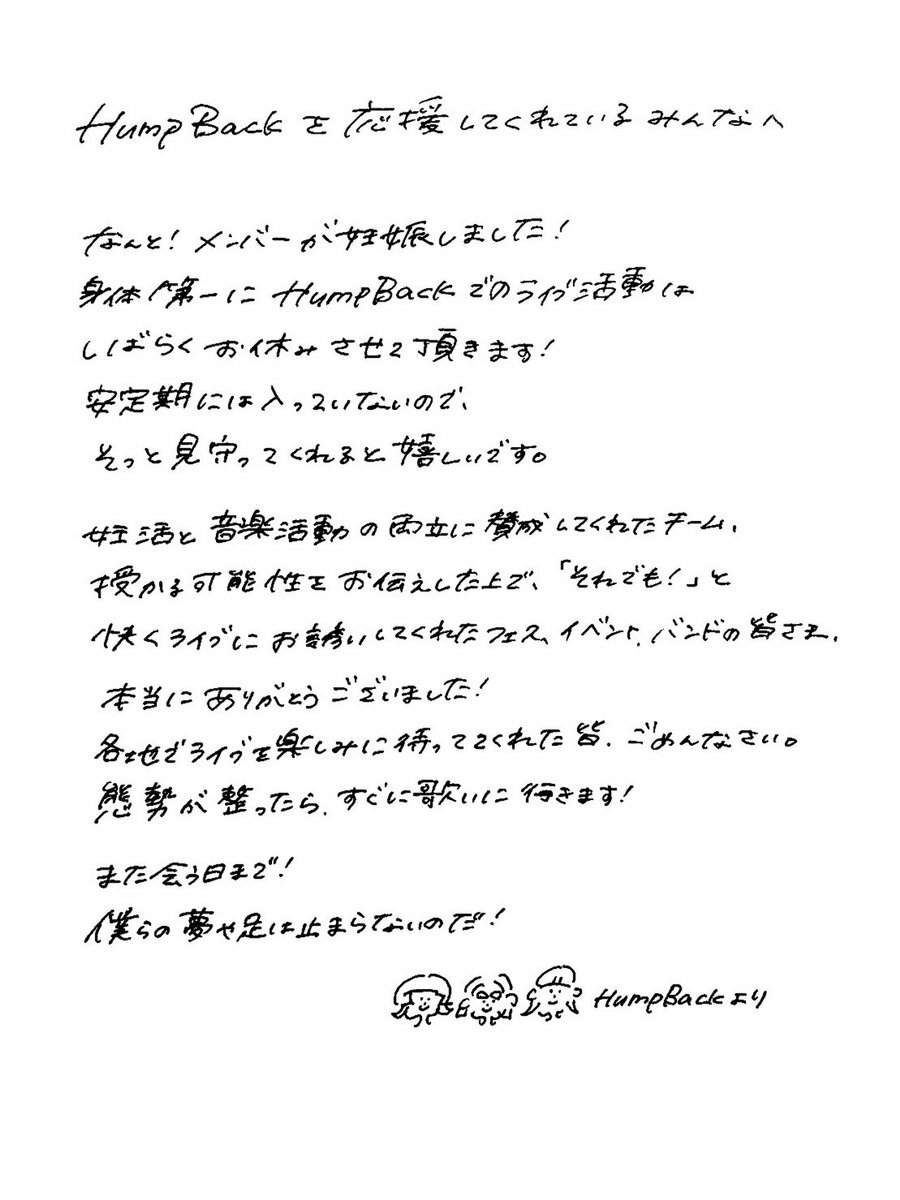 HumpBackを応援してくれているみんなへ
なんと!メンバーが妊娠しました!
身体第一にHumpBackでのライブ活動は
しばらくお休みさせて頂きます!
安定期には入っていないので、
そっと見守ってくれると嬉しいです。
妊活と音楽活動の両立に賛成してくれたチーム、
授かる可能性をお伝えした上で、「それでも!」と
快くライブにお誘いしてくれたフェス、イベント、バンドの皆さま、
本当にありがとうございました!
各地でライブを楽しみに待っててくれた皆、ごめんなさい。
態勢が整ったら、すぐに歌いに行きます!
また会う日まで!
僕らの夢や足は止まらないのだ!
HumpBackより